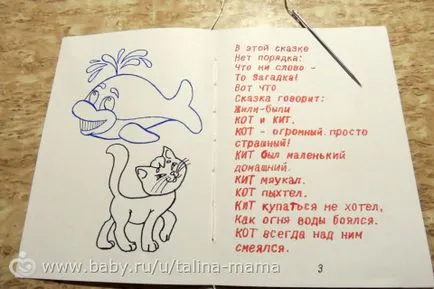 В этой сказке
Нет порядка:
Что ни слово -
То загадка!
Вот что
Сказка говорит:
Жили-были
КОТ и КИТ.
КОТ - огромный, просто
страшный!
КИТ был маленький
домашний.
КИТ мяукал.
КОТ пыхтел.
КИТ купаться не хотел,
Как огня воды боялся.
КОТ всегда над ним
смеялся.
3
www.baby.ru/u/talina-mama